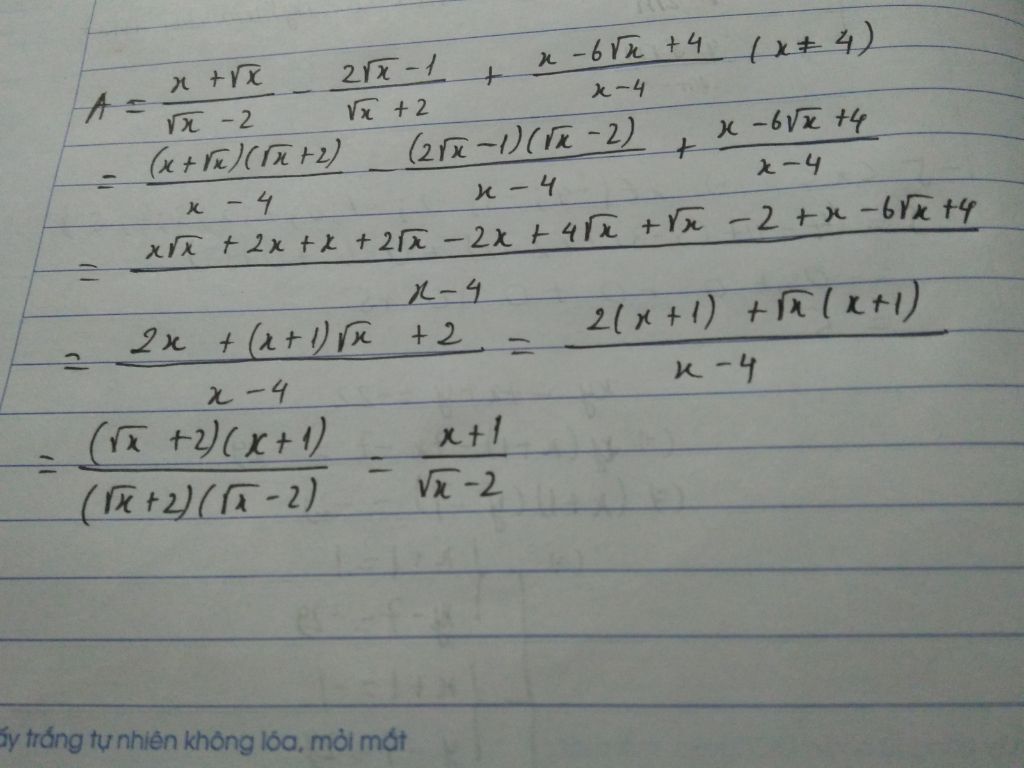 A = \frac{x + \sqrt{x}}{\sqrt{x} - 2} - \frac{2\sqrt{x} - 1}{\sqrt{x} + 2} + \frac{x - 6\sqrt{x} + 4}{x - 4} (x ≠ 4)
= \frac{(x + \sqrt{x})(\sqrt{x} + 2)}{x - 4} - \frac{(2\sqrt{x} - 1)(\sqrt{x} - 2)}{x - 4} + \frac{x - 6\sqrt{x} + 4}{x - 4}
= \frac{x\sqrt{x} + 2x + x + 2\sqrt{x} - 2x + 4\sqrt{x} + \sqrt{x} - 2 + x - 6\sqrt{x} + 4}{x - 4}
= \frac{2x + (x + 1)\sqrt{x} + 2}{x - 4} = \frac{2(x + 1) + \sqrt{x}(x + 1)}{x - 4}
= \frac{(\sqrt{x} + 2)(x + 1)}{(\sqrt{x} + 2)(\sqrt{x} - 2)} = \frac{x + 1}{\sqrt{x} - 2}
trắng tự nhiên không lóa, mỏi mắt